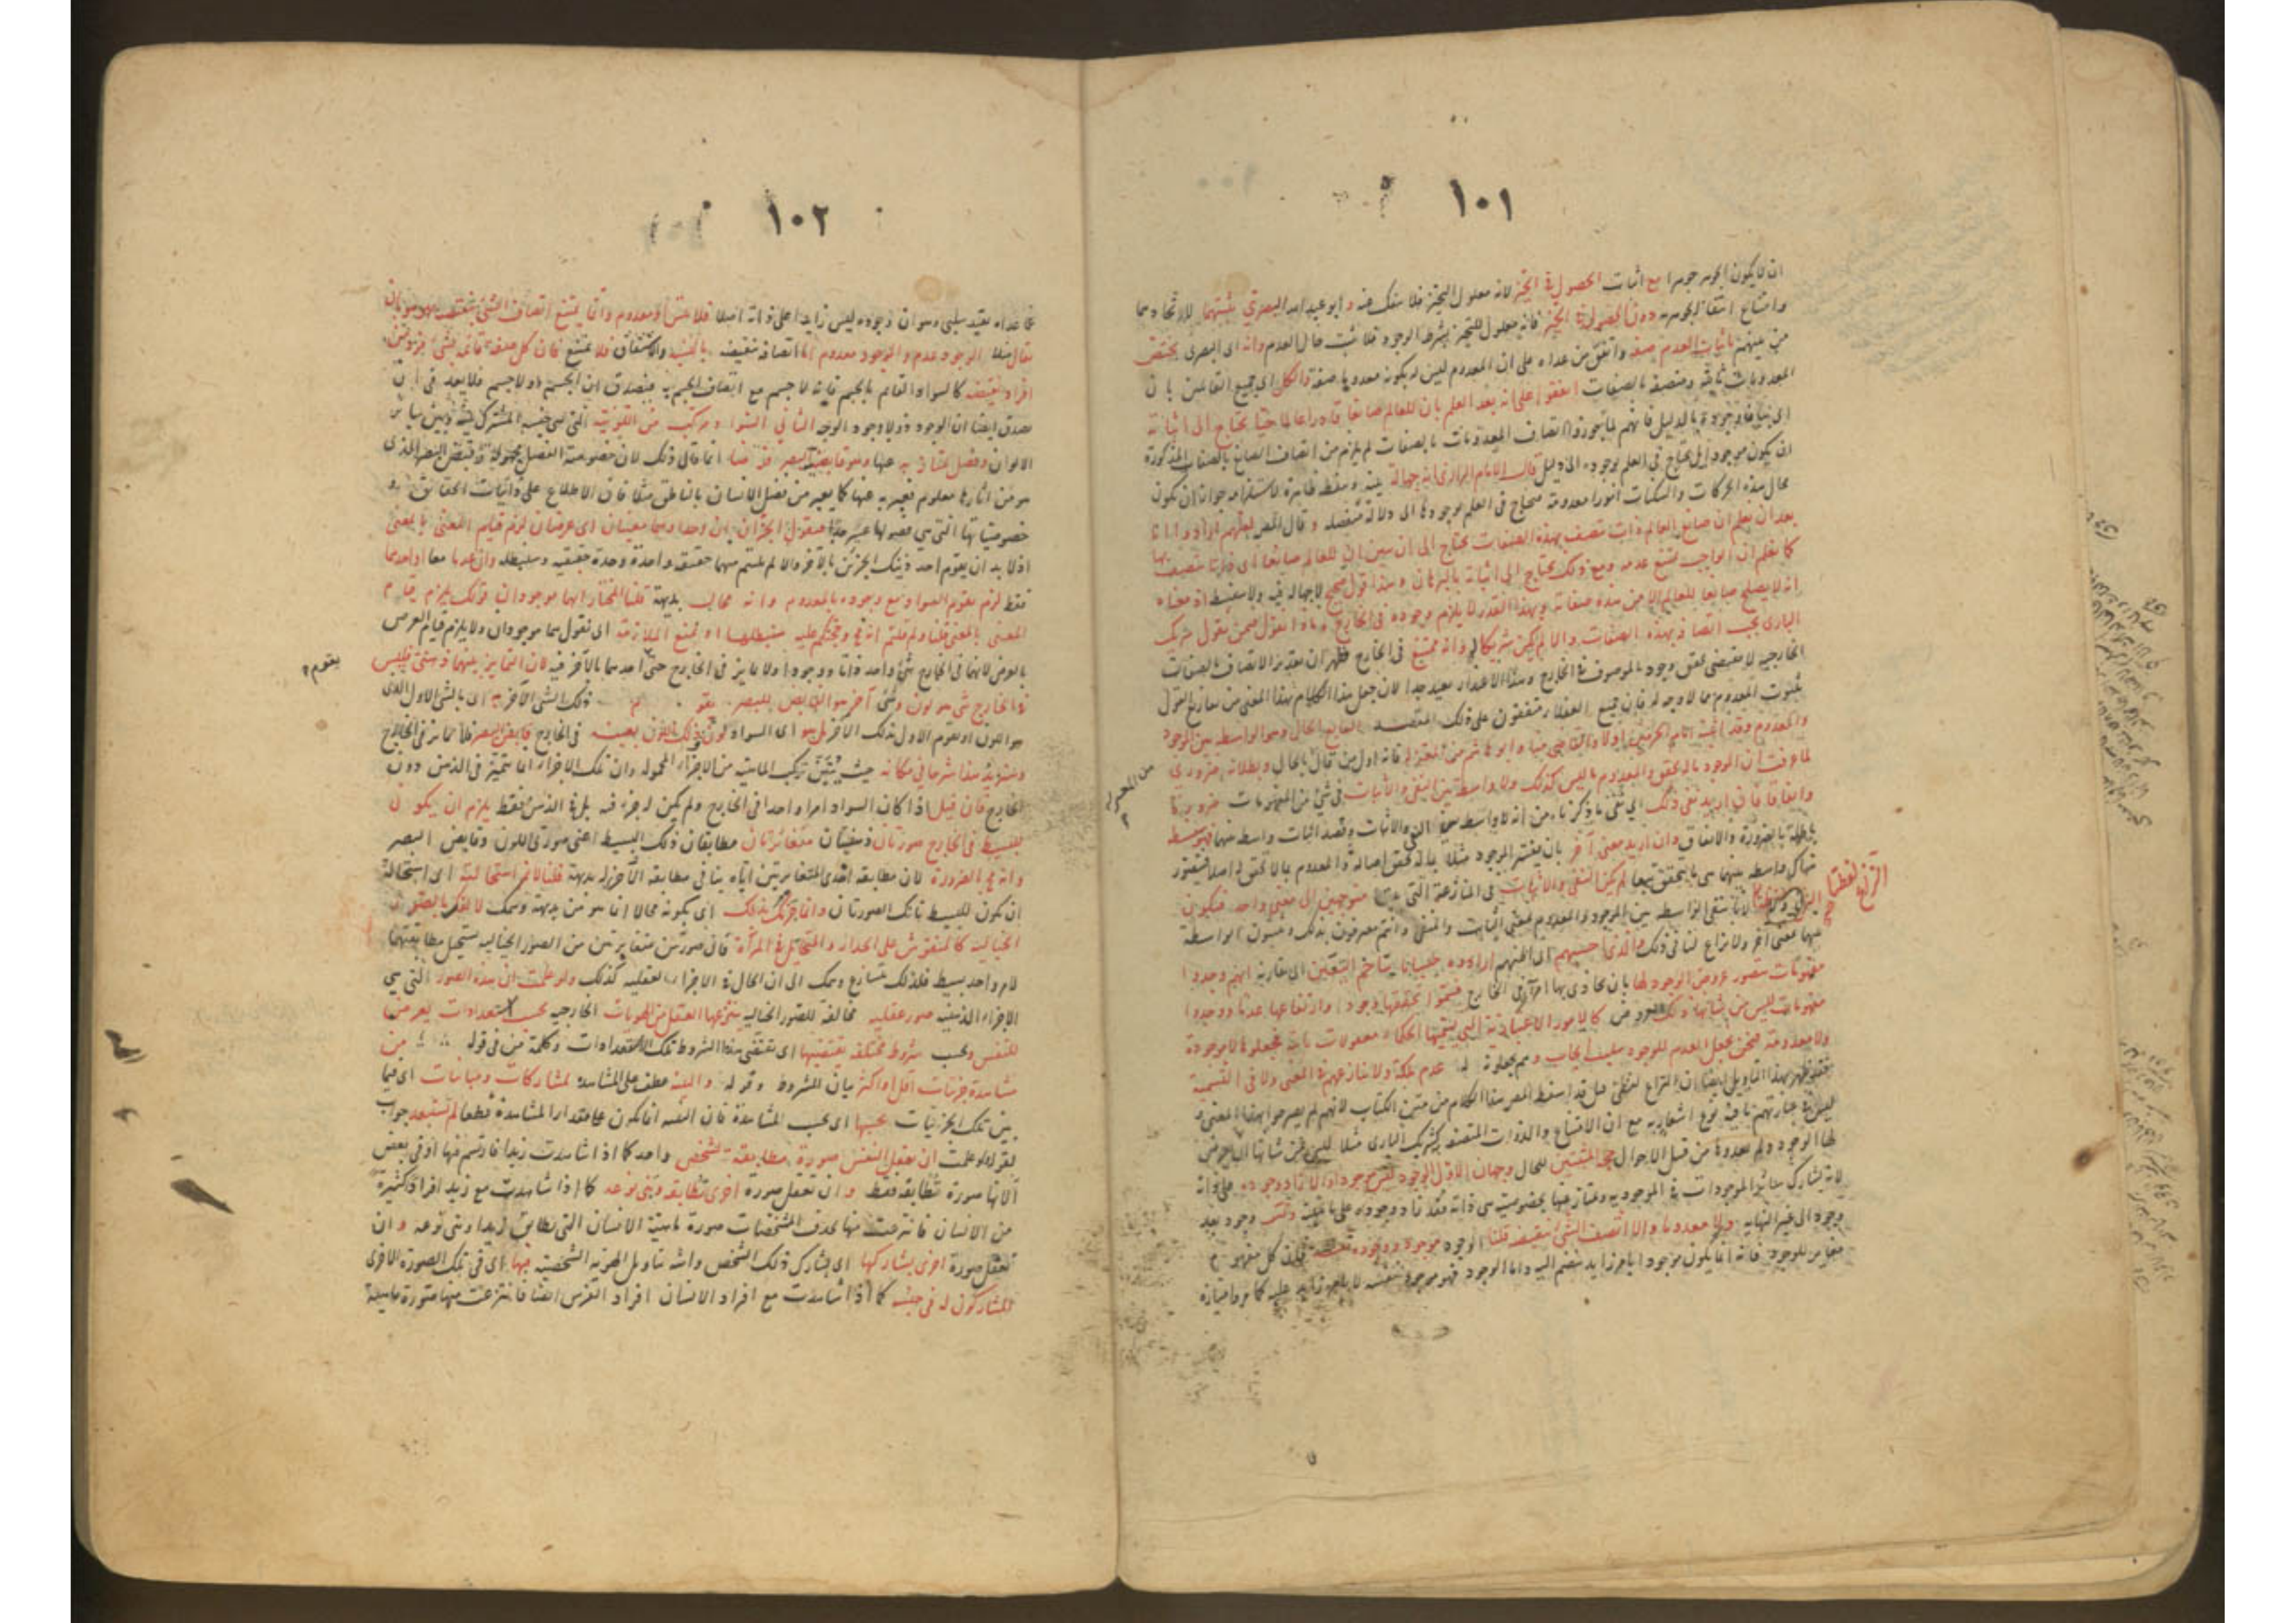 ١٠١
ان لا يكون الجوهر جوهرا مع اثبات الحصول في الحيز لانه معلول التحيز فلا ينفك عنه وابو عبد الله البصري يثبتهما
وامتناع دون الحصول في الحيز فانه معلول للتحيز بشرط الوجود فلا يثبت حال العدم وانه اى البصرى يختص
من بينهم باثبات العدم صفة واتفق من عداه على ان المعدوم ليس له بكونه معدوما صفة والكل اى جميع القائلين بان
المعدومات ثابتة ومتصفة بالصفات اتفقوا على انه بعد العلم بان للعالم صانعا قادرا عالما حيا يحتاج الى اثباته
اى بيان وجوده بالدليل فانهم لما جوزوا اتصاف المعدومات بالصفات لم يلزم من اتصاف الصانع بالصفات المذكورة
ان يكون موجودا بل يحتاج في العلم بوجوده الى دليل قال الامام الرازى انه جهالة بينة وسفسطة ظاهرة لاستلزامه جواز ان يكون
محال هذه الحركات والسكنات امورا معدومة محتاج في العلم بوجودها الى دلالة منفصلة وقال المص
بعد ان نعلم ان صانع العالم ذات تتصف بهذه الصفات يحتاج الى ان نبين ان للعالم صانعا اى ذاتا متصف بها
كما نعلم ان الواجب يمتنع عدمه ومع ذلك يحتاج الى اثباته بالبرهان وهذا قول صحيح لا جهالة فيه ولا سفسطة اذ معناه
انه لا يصلح صانعا للعالم الا من هذه صفاته وبهذا القدر لا يلزم وجوده في الخارج
البارى يجب اتصافه بهذه الصفات والا لم يكن شريكا له وانه ممتنع في الخارج فظهر ان تقدير الاتصاف بالصفات
الخارجية لا يقتضى تحقق وجود الموصوف في الخارج وهذا الاعتذار بعيد جدا لان جعل هذا الكلام بهذا المعنى من تفاريع القول
بثبوت المعدوم مما لا وجه له فان جميع العقلاء متفقون على ذلك الحال وهو الواسطة بين الموجود
والمعدوم وقد اثبته امام الحرمين اولا والقاضى منا وابو هاشم من المعتزلة فانه اول من قال بالحال وبطلانه ضرورى
لما عرفت ان الموجود ما له تحقق والمعدوم ما ليس كذلك ولا واسطة بين النفى والاثبات في شئ من المفهومات ضرورة
واتفاقا فان اريد نفى ذلك اى نفى ما ذكرناه من انه لا واسطة بين النفى والاثبات وقصد اثبات واسطة بينهما فهو سفسطة
باطلة بالضرورة والاتفاق وان اريد معنى آخر بان يفسر الموجود مثلا بما له تحقق اصالة والمعدوم بما لا تحقق له اصلا فيتصور
هناك واسطة بينهما هى ما يتحقق تبعا لم يكن النفى والاثبات في المنازعة التى بيننا متوجهين الى معنى واحد فيكون
النزاع لفظيا لانا ننفى الواسطة بين الموجود والمعدوم بمعنى الثابت والمنفى وانتم معترفون بذلك وتثبتون الواسطة
بينهما بمعنى آخر ولا نزاع لنا في ذلك والذى احسبهم اى اظنهم ارادوه حسبانا يتاخم اليقين اى يقاربه انهم وجدوا
مفهومات يتصور عروض الوجود لها بان يحاذى بها امر في الخارج فسموا تحققها وجودا وارتفاعها عدما ووجدوا
مفهومات ليس من شأنها ذلك العروض كالامور الاعتبارية التى يسميها الحكماء معقولات ثانية فجعلوها لا موجودة
ولا معدومة فنحن نجعل العدم للوجود سلب ايجاب وهم يجعلونه له عدم ملكة ولا ننازعهم في المعنى ولا في التسمية
فقد ظهر بهذا التأويل ايضا ان النزاع لفظى بل قد اسقط المص هذا الكلام من متن الكتاب لانهم لم يصرحوا بهذا المعنى
ليس في عبارتهم ما فيه نوع اشعار به مع ان الامتناع والذوات المتصفة به كشريك البارى مثلا ليس من شأنها
لها الوجود ولم يعدوها من قبيل الاحوال حجة المثبتين للحال وجهان الاول الوجود ليس موجودا والا زاد وجوده
لانه يشارك سائر الموجودات في الموجودية ويمتاز عنها بخصوصية هى ذاته فقد زاد وجوده على ماهيته وتس وجود بعد
وجود الى غير النهاية ولا معدوما والا اتصف الشئ بنقيضه قلنا الوجود موجود ووجوده نفسه فان كل مفهوم
مغاير للوجود فانه انما يكون موجودا بامر زايد ينضم اليه واما الوجود فهو موجود بنفسه لا بامر زايد عليه كما مر وامتيازه
١٠٢
عما عداه بقيد سلبى وهو ان وجوده ليس زايدا على ذاته اصلا فلا تس او معدوم وانما يمتنع اتصاف الشئ بنقيضه بهو هو بان
يقال مثلا الوجود عدم والموجود معدوم اما اتصافه بنقيضه بالنسبة والاشتقاق فلا يمتنع فان كل صفة قائمة بشئ فرد من
افراد نقيضه كالسواد القائم بالجسم فانه لا جسم مع اتصاف الجسم به فيصدق ان الجسم ذو لا جسم فلا يعد في ان
يصدق ايضا ان الوجود ذو لا وجود الوجه الثانى السواد مركب من اللونية التى هى جنسه المشترك بينه وبين سائر
الالوان وفصل يمتاز به عنها وهو قابضية البصر فرضا انما قال ذلك لان خصوصية الفصل مجهولة وقبض البصر الذى
هو من اثارها معلوم فعبر به عنها كما يعبر عن فصل الانسان بالناطق مثلا فان الاطلاع على ذاتيات الحقائق و
خصوصياتها التى هى فصولها عسير جدا فنقول الجزآن ان وجدا وهما معنيان اى عرضان لزم قيام المعنى بالمعنى
اذ لا بد ان يقوم احد ذينك الجزئين بالآخر والا لم يلتئم منهما حقيقة واحدة وحدة حقيقية وسنبطله وان عدما معا او احدهما
فقط لزم تقوم السواد مع وجوده بالمعدوم وانه محال بديهة قلنا المختار انهما موجودان قولك يلزم قيام
المعنى بالمعنى قلنا ولم قلتم انه مح وحجتكم عليه سنبطلها او نمنع الملازمة اى نقول هما موجودان ولا يلزم قيام العرض
بالعرض لانهما في الخارج شئ واحد ذاتا ووجودا ولا تمايز في الخارج حتى احدهما بالآخر فيه لان التمايز بينهما ذهنى فليس
يقوم
في الخارج شئ هو لون وشئ آخر هو القابض للبصر يقوم ذلك الشئ الآخر به اى بالشئ الاول الذى
هو اللون او يقوم الاول بذلك الآخر بل هو اى السواد لون ذلك اللون بعينه في الخارج قابض للبصر فلا تمايز في الخارج
وسنزيد هذا شرحا في مكانه حيث نبين تركب الماهية من الاجزاء المحمولة وان تلك الاجزاء انما تتميز في الذهن دون
الخارج فان قيل اذا كان السواد امرا واحدا في الخارج ولم يكن له جزء فيه بل في الذهن فقط يلزم ان يكون
للبسيط في الخارج صورتان ذهنيتان متغائرتان مطابقتان لذلك البسيط اعنى صورتى اللون وقابض البصر
وانه مح بالضرورة لان مطابقة احدى المتغايرتين اياه ينافى مطابقة الاخرى له بديهة قلنا لا نم استحالته اى استحالة
ان يكون للبسيط تانك الصورتان وانما جزمك بذلك اى بكونه محالا انما هو من بديهة وهمك لالفك بالصور
الخيالية كالمنقوش على الجدار والمتخايل في المرآة فان صورتين متغايرتين من الصور الخيالية يستحيل مطابقتهما
لامر واحد بسيط فلذلك يتسارع وهمك الى ان الحال في الاجزاء العقلية كذلك ولو علمت ان هذه الصور التى هى
الاجزاء الذهنية صور عقلية مخالفة للصور الخيالية ينتزعها العقل من الهويات الخارجية بحسب استعدادات يعرض
للنفس وبحسب شروط مختلفة يقتضيها اى تقتضى هذه الشروط تلك الاستعدادات وكلمة من في قوله من
مشاهدة جزئيات اقل او اكثر بيان للشروط وقوله والتنبه عطف على المشاهدة لمشاركات ومباينات اى فيما
بين تلك الجزئيات بحسبها اى بحسب المشاهدة فان التنبه انما يكون على مقدار المشاهدة قطعا لم تستبعد جواب
لقوله ولو علمت ان يعقل النفس صورة مطابقة لشخص واحد كما اذا شاهدت زيدا فارتسم فيها او في بعض
آلاتها صورة تطابقه فقط وان تعقل صورة اخرى تطابقه وبنى نوعه كما اذا شاهدت مع زيد افرادا كثيرة
من الانسان فانتزعت منها بحذف المشخصات صورة ماهية الانسان التى تطابق زيدا وبنى نوعه وان
تعقل صورة اخرى يشاركها اى يشارك ذلك الشخص وانثه بتاويل الهوية الشخصية فيها اى في تلك الصورة الاخرى
المشاركون له في جنسه كما اذا شاهدت مع افراد الانسان افراد الفرس ايضا فانتزعت منها صورة ماهية